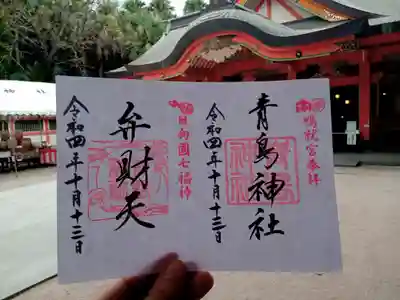 鴨就宮奉拝
青島神社
令和四年十月十三日
日向國七福神
弁財天
令和四年十月十三日